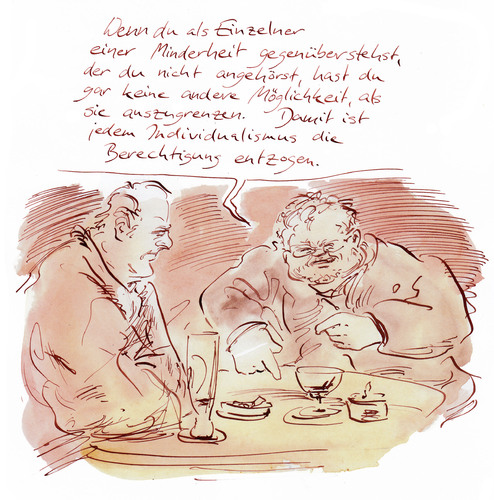 Wenn du als Einzelner
einer Minderheit gegenüberstehst,
der du nicht angehörst, hast du
gar keine andere Möglichkeit, als
sie auszugrenzen. Damit ist
jedem Individualismus die
Berechtigung entzogen.